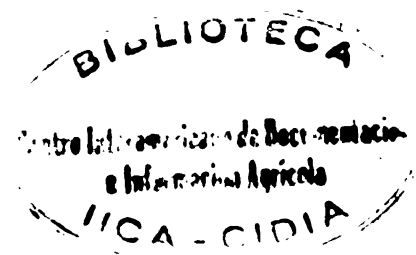 BIBLIOTECA
Centro Interamericano de Documentación
e Información Agrícola
IICA - CIDIA